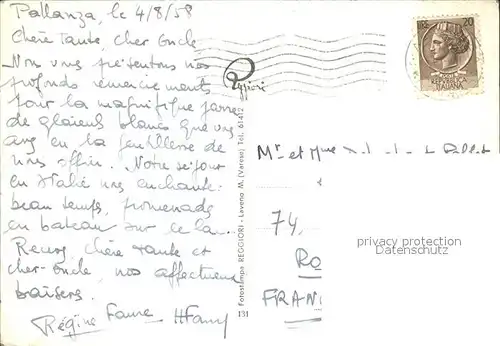 Pallanza, le 4/8/58
Chère Tante, cher Oncle
Nous vous présentons nos
profonds remerciements
pour la magnifique gerbe
de glaïeuls blancs que vous
avez eu la gentillesse de
nous offrir. Notre séjour
en Italie nous enchante:
beau temps, promenade
en bateau sur le lac...
Recevez, chère tante et
cher Oncle, nos affectueux
baisers.
Régine Faure
Reggiori
Fotostampa REGGIORI - Laveno M. (Varese) Tel. 61412
131
20
REPUBBLICA
ITALIANA
Mr et Mme
74,
privacy protection
Datenschutz
RO
FRAN